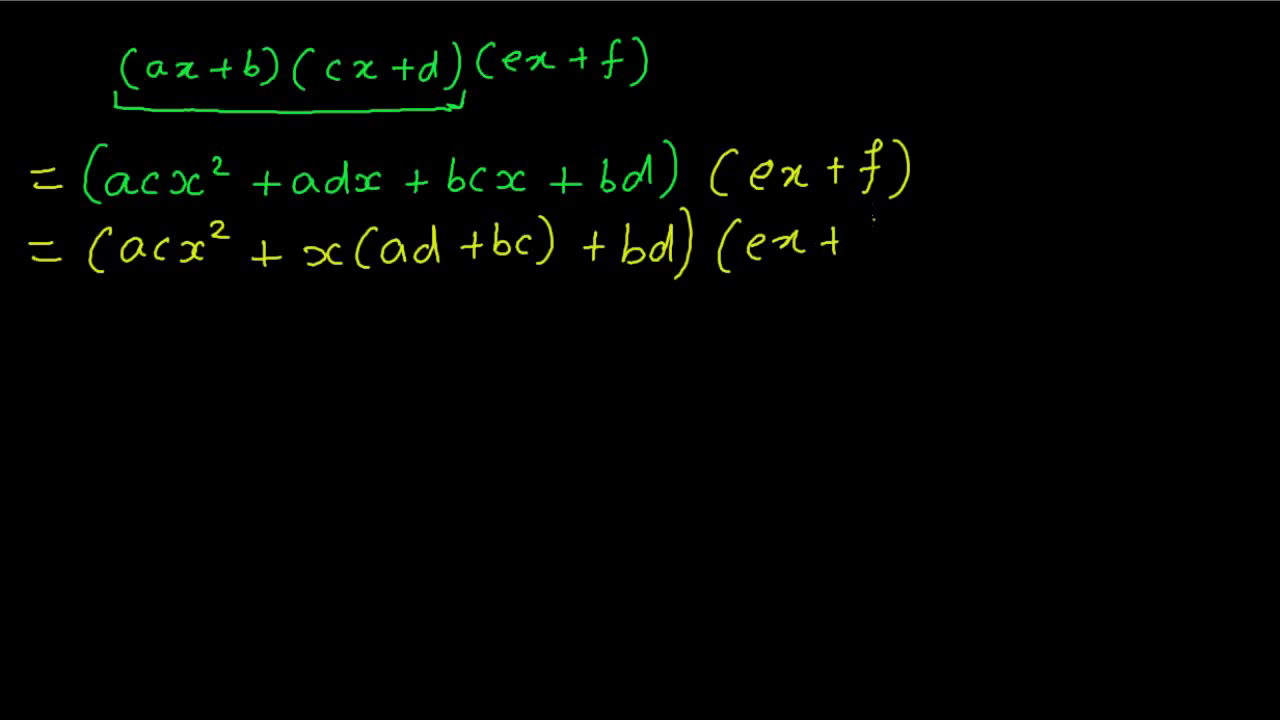 (ax+b)(cx+d)(ex+f)
= (acx² + adx + bcx + bd) (ex + f)
= (acx² + x(ad + bc) + bd) (ex +